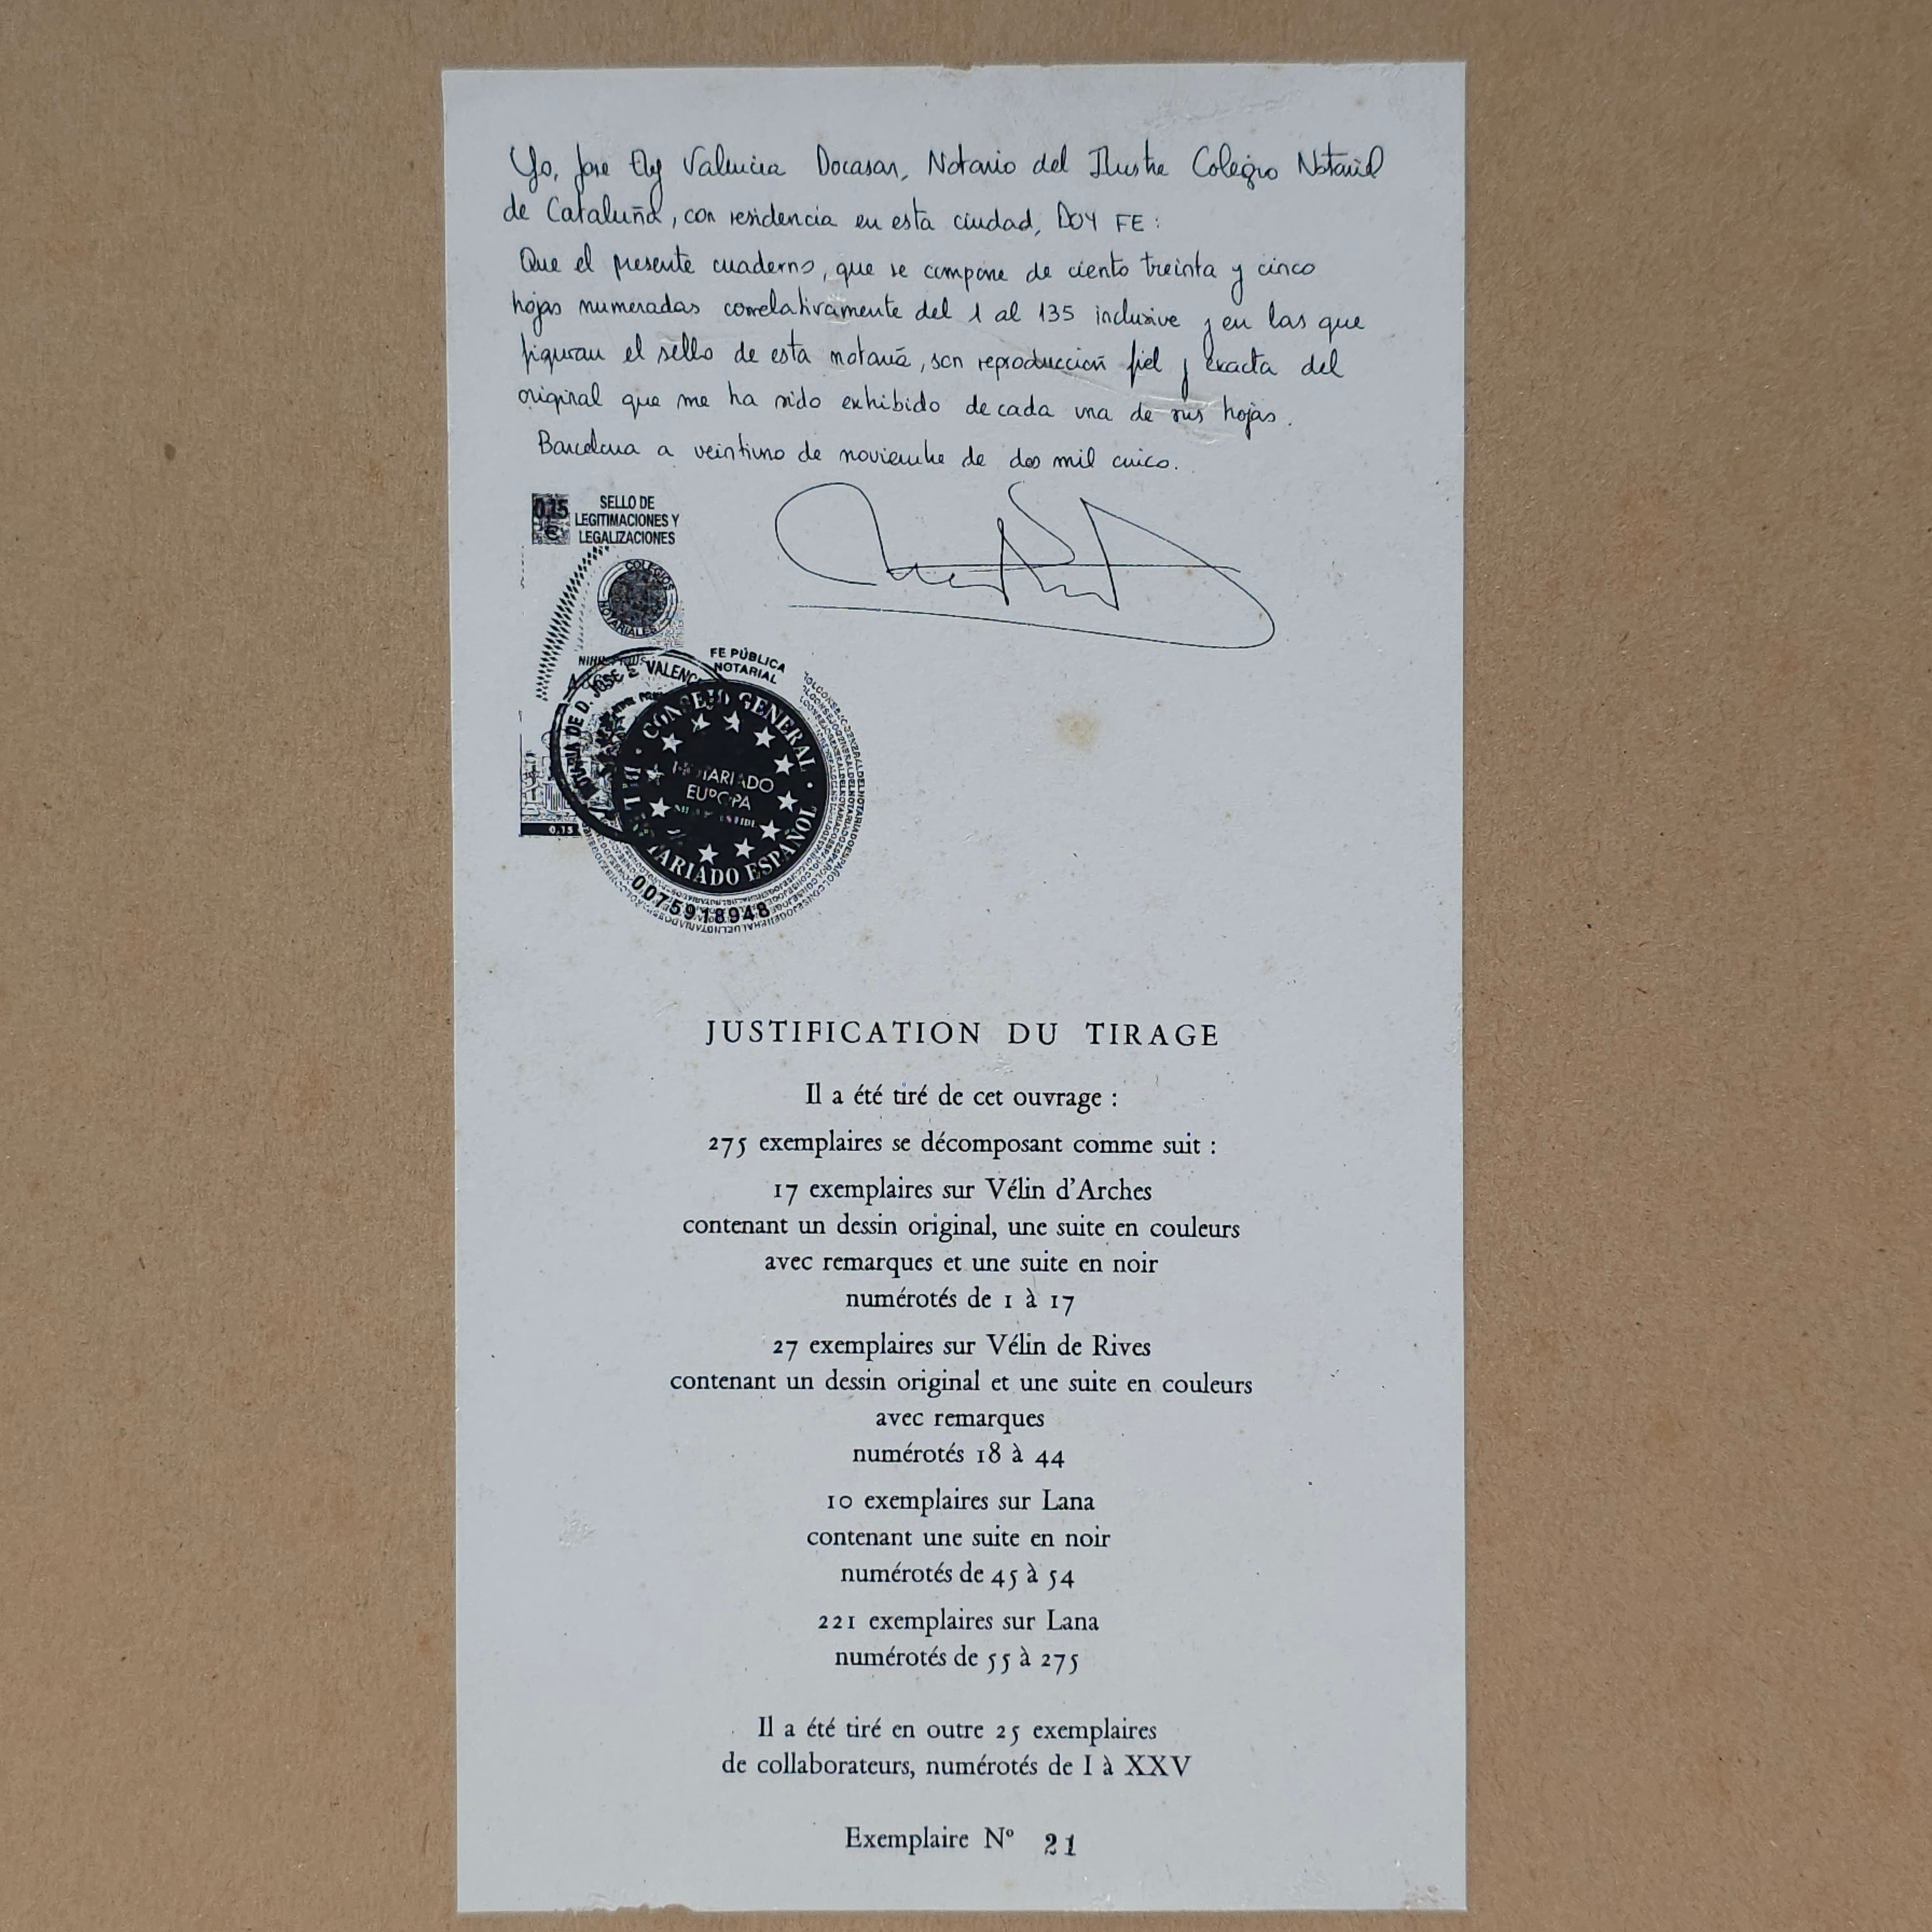 Yo, Jose Eloy Valencia Docasar, Notario del Ilustre Colegio Notarial
de Cataluña, con residencia en esta ciudad, DOY FE:
Que el presente cuaderno, que se compone de ciento treinta y cinco
hojas numeradas correlativamente del 1 al 135 inclusive y en las que
figuran el sello de esta notaría, son reproducción fiel y exacta del
original que me ha sido exhibido de cada una de sus hojas.
Barcelona a veintiuno de noviembre de dos mil cinco.
0,15 €
SELLO DE
LEGITIMACIONES Y
LEGALIZACIONES
COLEGIOS
NOTARIALES
FE PÚBLICA
NOTARIAL
DE D. JOSE E. VALENC
CONSEJO GENERAL
NOTARIADO
EUROPA
DEL NOTARIADO ESPAÑOL
0,15
0075918948
JUSTIFICATION DU TIRAGE
Il a été tiré de cet ouvrage :
275 exemplaires se décomposant comme suit :
17 exemplaires sur Vélin d'Arches
contenant un dessin original, une suite en couleurs
avec remarques et une suite en noir
numérotés de 1 à 17
27 exemplaires sur Vélin de Rives
contenant un dessin original et une suite en couleurs
avec remarques
numérotés 18 à 44
10 exemplaires sur Lana
contenant une suite en noir
numérotés de 45 à 54
221 exemplaires sur Lana
numérotés de 55 à 275
Il a été tiré en outre 25 exemplaires
de collaborateurs, numérotés de I à XXV
Exemplaire Nº 21